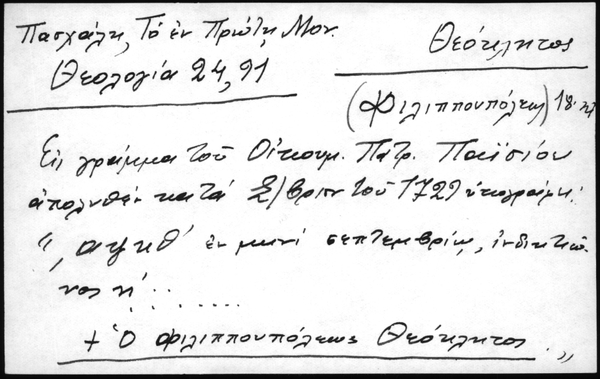 Πασχάλη, Τό ἐν Πρώτῃ Μον.
Θεολογία 24, 91
Θεόκλητος
(Φιλιππουπόλεως) 18.
Εἰς γράμμα τοῦ Οἰκουμ. Πατρ. Παϊσίου
ἀπολυθέν κατά 7/βριον τοῦ 1729 ὑπογράφει:
"͵αψκθ' ἐν μηνί σεπτεμβρίῳ, ἰνδικτιῶ-
νος η'.........
+ Ὁ Φιλιππουπόλεως Θεόκλητος."